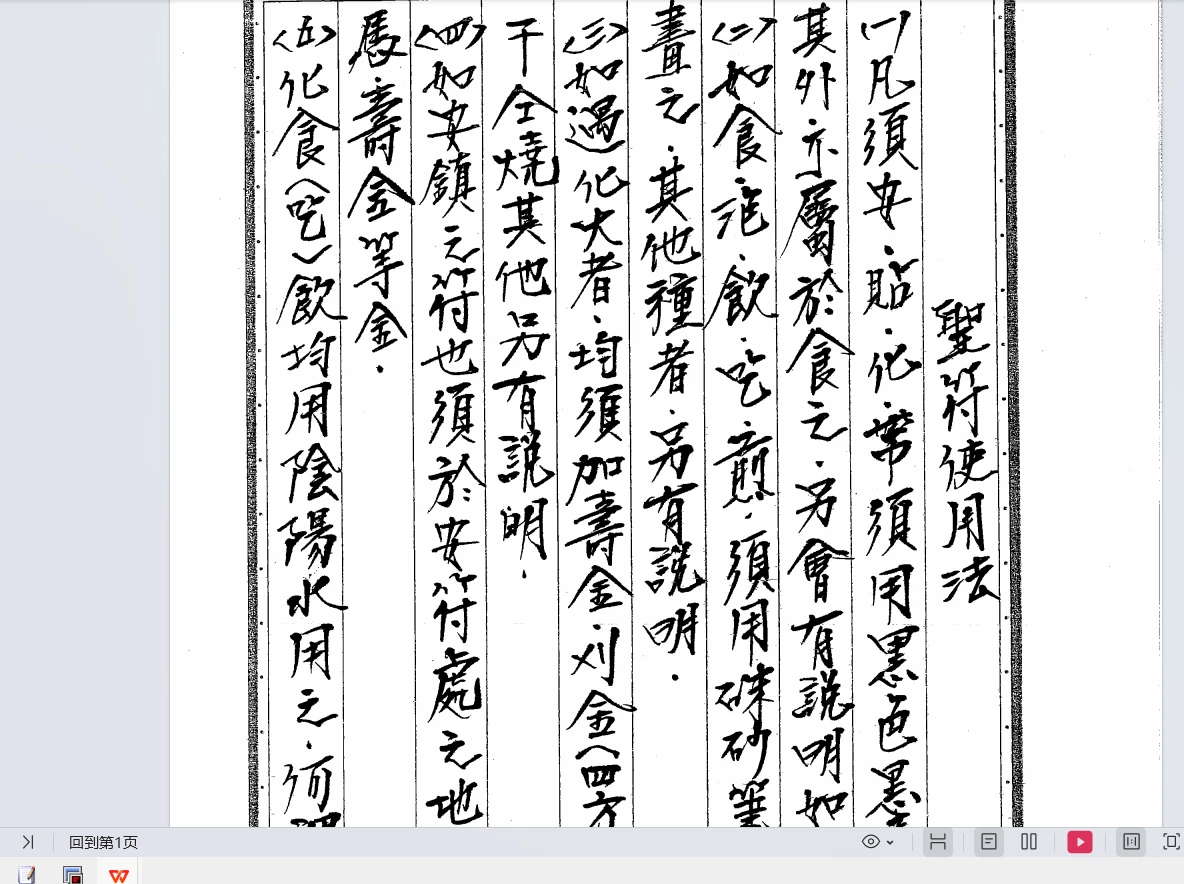 聖符使用法
㈠凡須安.貼.化.帶須用黑色墨
其外亦屬於食之.另會有說明如
㈡如食.泡.飲.吃.煎.須用硃砂筆
畫之.其他種者.另有說明.
㈢如遇化火者.均須加壽金.刈金(四方
干全燒其他另有說明.
㈣如安鎮之符也須於安符處之地
馬壽金等金.
㈤化食(吃)飲均用陰陽水用之.
回到第1页